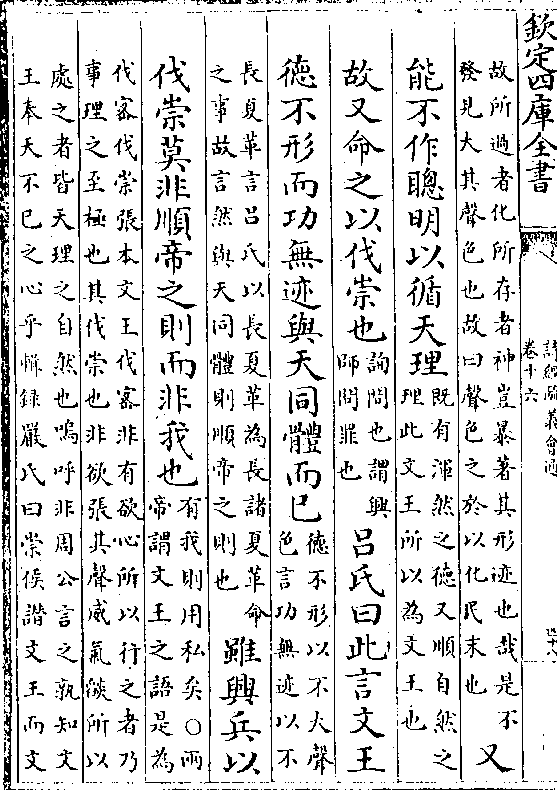 欽定四庫全書
詩經疏義會通
卷十六
四十六
故所過者化所存者神豈暴著其形迹也哉是不
發見大其聲色也故曰聲色之於以化民末也
又
能不作聰明以循天理
既有渾然之德又順自然之
理此文王所以為文王也
故又命之以伐崇也
詢問也謂興
師問罪也
呂氏曰此言文王
德不形而功無迹與天同體而已
德不形以不大聲
色言功無迹以不
長夏革言呂氏以長夏革為長諸夏革命
之事故言然與天同體則順帝之則也
雖興兵以
伐崇莫非順帝之則而非我也
有我則用私矣○兩
帝謂文王之語是為
伐密伐崇張本文王伐密非有欲心所以行之者乃
事理之至極也其伐崇也非欲張其聲威氣燄所以
處之者皆天理之自然也嗚呼非周公言之孰知文
王奉天不已之心乎輯録嚴氏曰崇侯譖文王而文